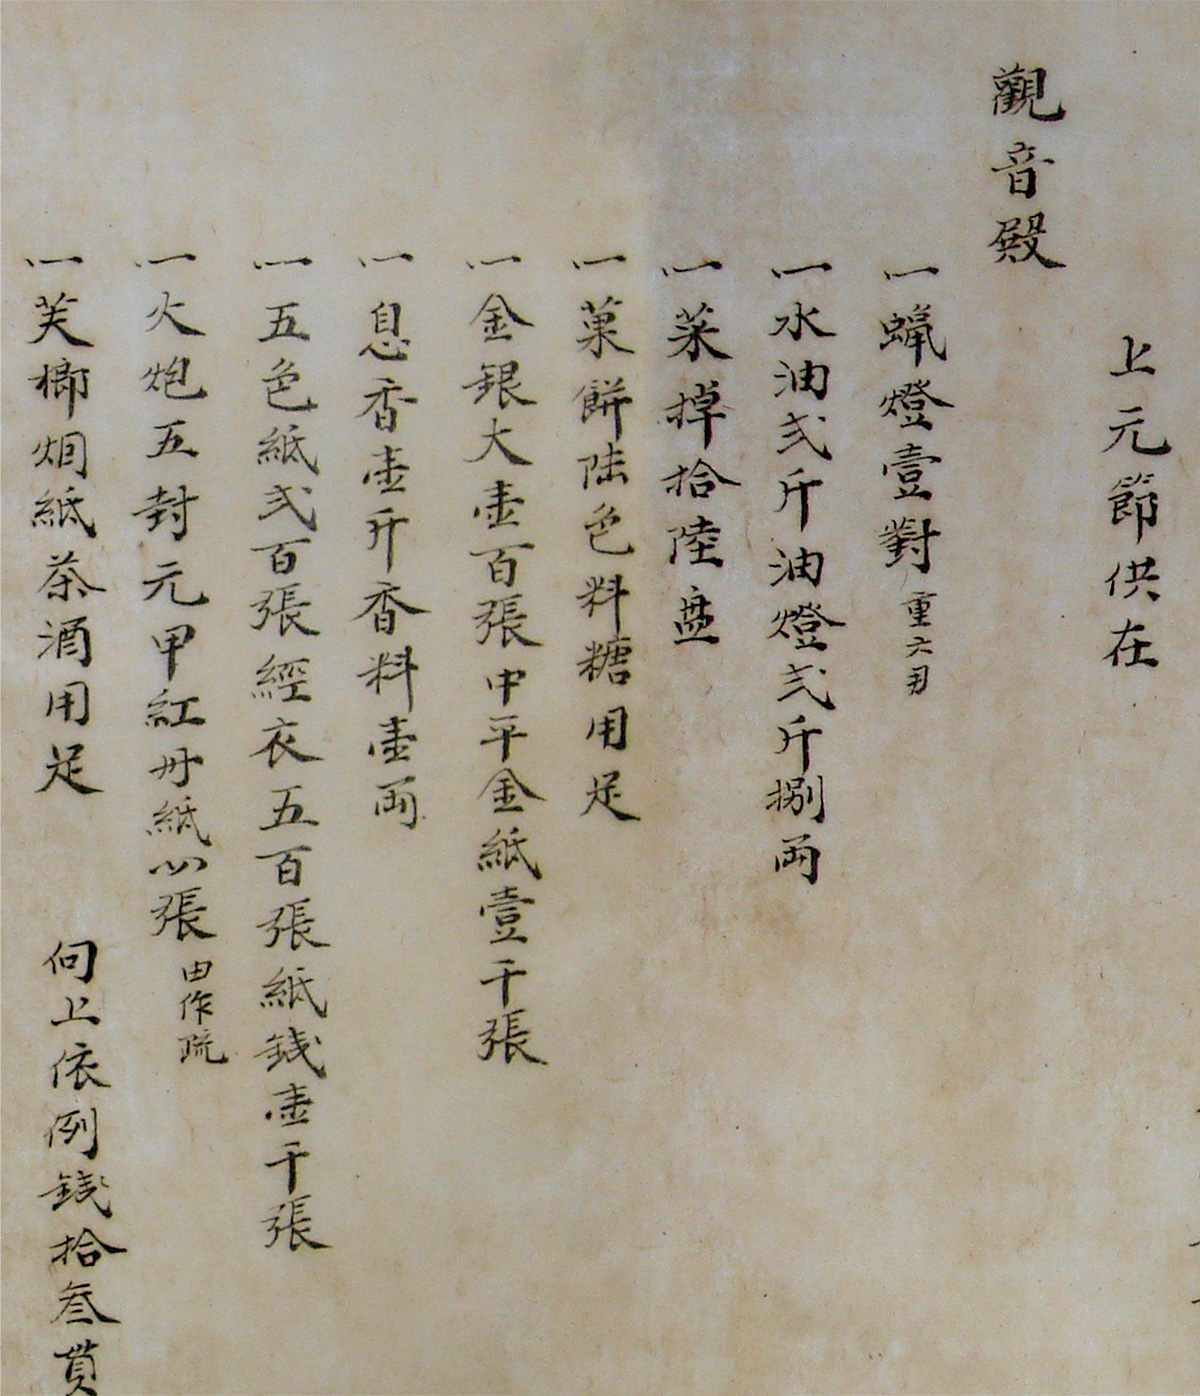 上元節供在
觀音殿
一蠟燈壹對重六刃
一水油弍斤油燈弍斤捌両
一菜掉拾陸盘
一菓餅陆色料糖用足
一金銀大壹百張中平金紙壹千張
一息香壹斤香料壹両
一五色紙弍百張經衣五百張紙銭壹千張
一火炮五封元甲紅丹紙 張由作疏
一芙榔烟紙茶酒用足 仝上依例銭拾叁貫